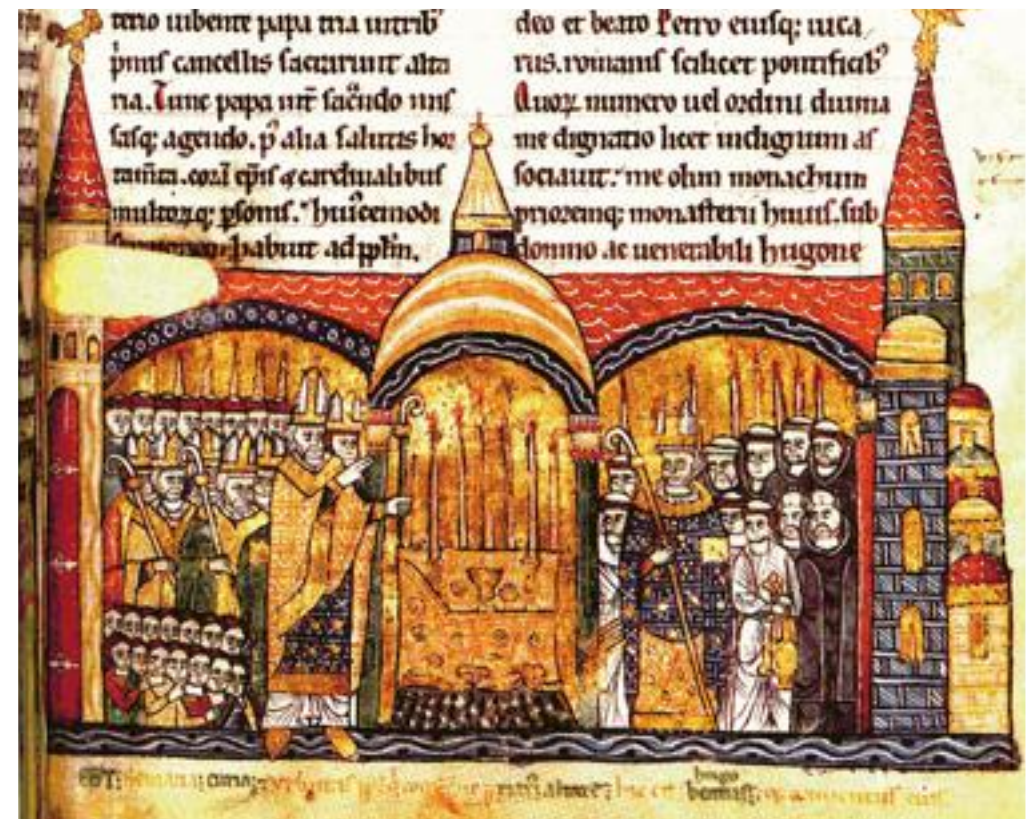 terio iubente papa tria in tribꝰ
pͥmis cancellis sacrarunt alta
ria. Tunc papa int̄ sac̄ndo mis
sasq; agendo. p̄ alia salutis hor
tam̄ta. corā ep̄is & cardinalibus
multoꝝq; p̱sonis. huicemodi
habuit ad pp̄lm.
deo et beato Petro eiusq; uica
riis. romanis scilicet pontificibꝰ
Quoꝝ numero uel ordini diuina
me dignatio licet indignum as
sociauit. me olim monachum
prioremq; monasterii huius. sub
domno ac uenerabili hugone
hugo